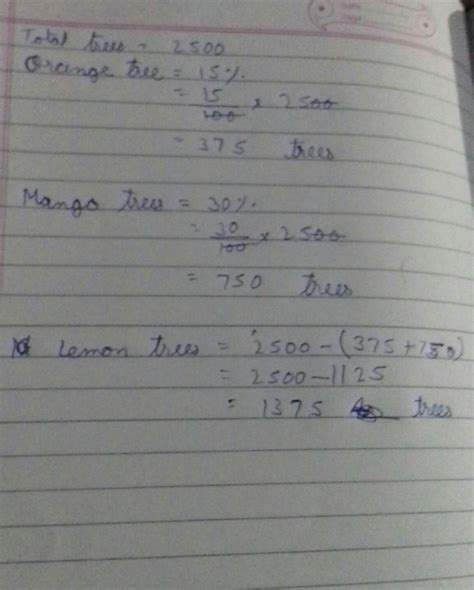 Total trees = 2500
Orange tree = 15%
= 15/100 x 2500
= 375 trees
Mango trees = 30%
= 30/100 x 2500
= 750 trees
Lemon trees = 2500-(375+750)
= 2500-1125
= 1375 trees